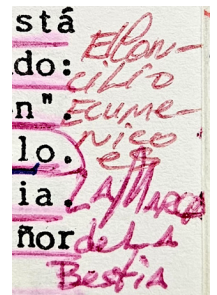 stá
do:
n".
lo.
ia.
ñor
El Con-
cilio
Ecume-
nico
es
LA MArcA
de LA
Bestia